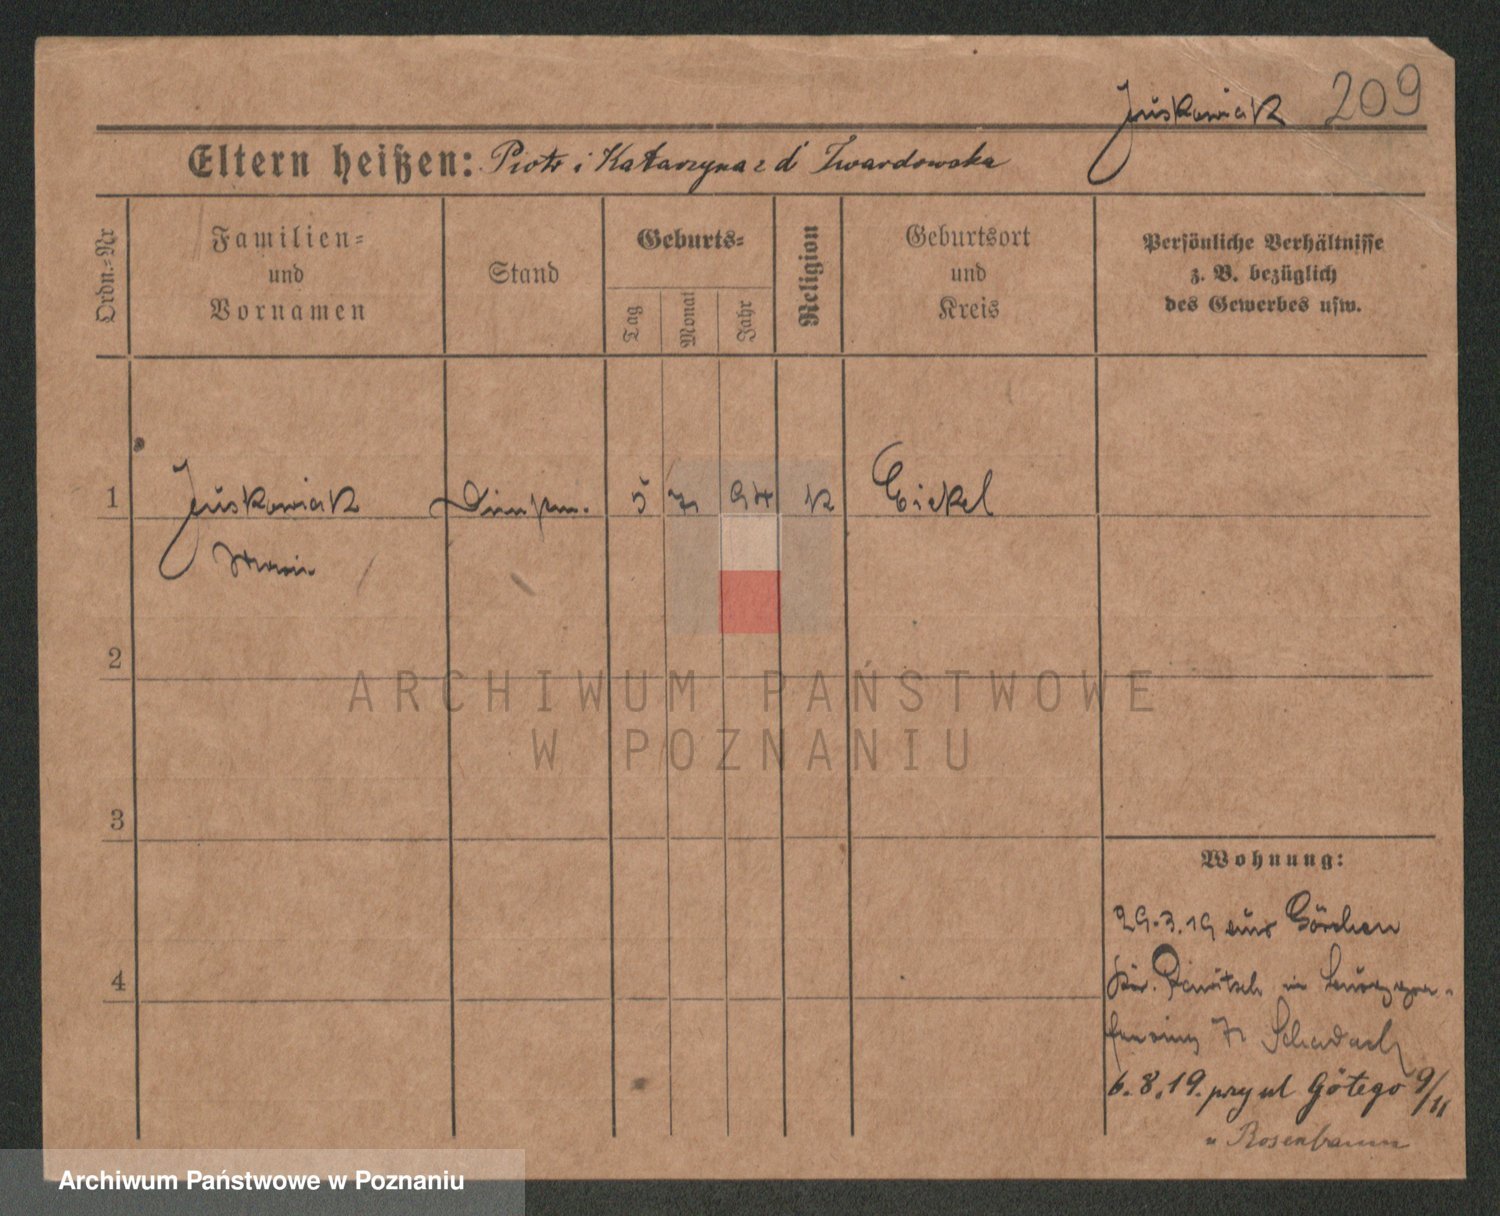 Juskowiak 209
Eltern heißen: Piotr i Katarzyna z d Twardowska
Ordn.=Nr
Familien=
und
Vornamen
Stand
Geburts=
Tag
Monat
Jahr
Religion
Geburtsort
und
Kreis
Persönliche Verhältnisse
z. B. bezüglich
des Gewerbes usw.
1 Juskowiak 5 7 94 k Eickel
2
ARCHIWUM PAŃSTWOWE
W POZNANIU
3
Wohnung:
29.3.19 aus Görchen
4
in
Schadach
6.8.19. przy ul Götego 9/11
u Rosenbaum
Archiwum Państwowe w Poznaniu